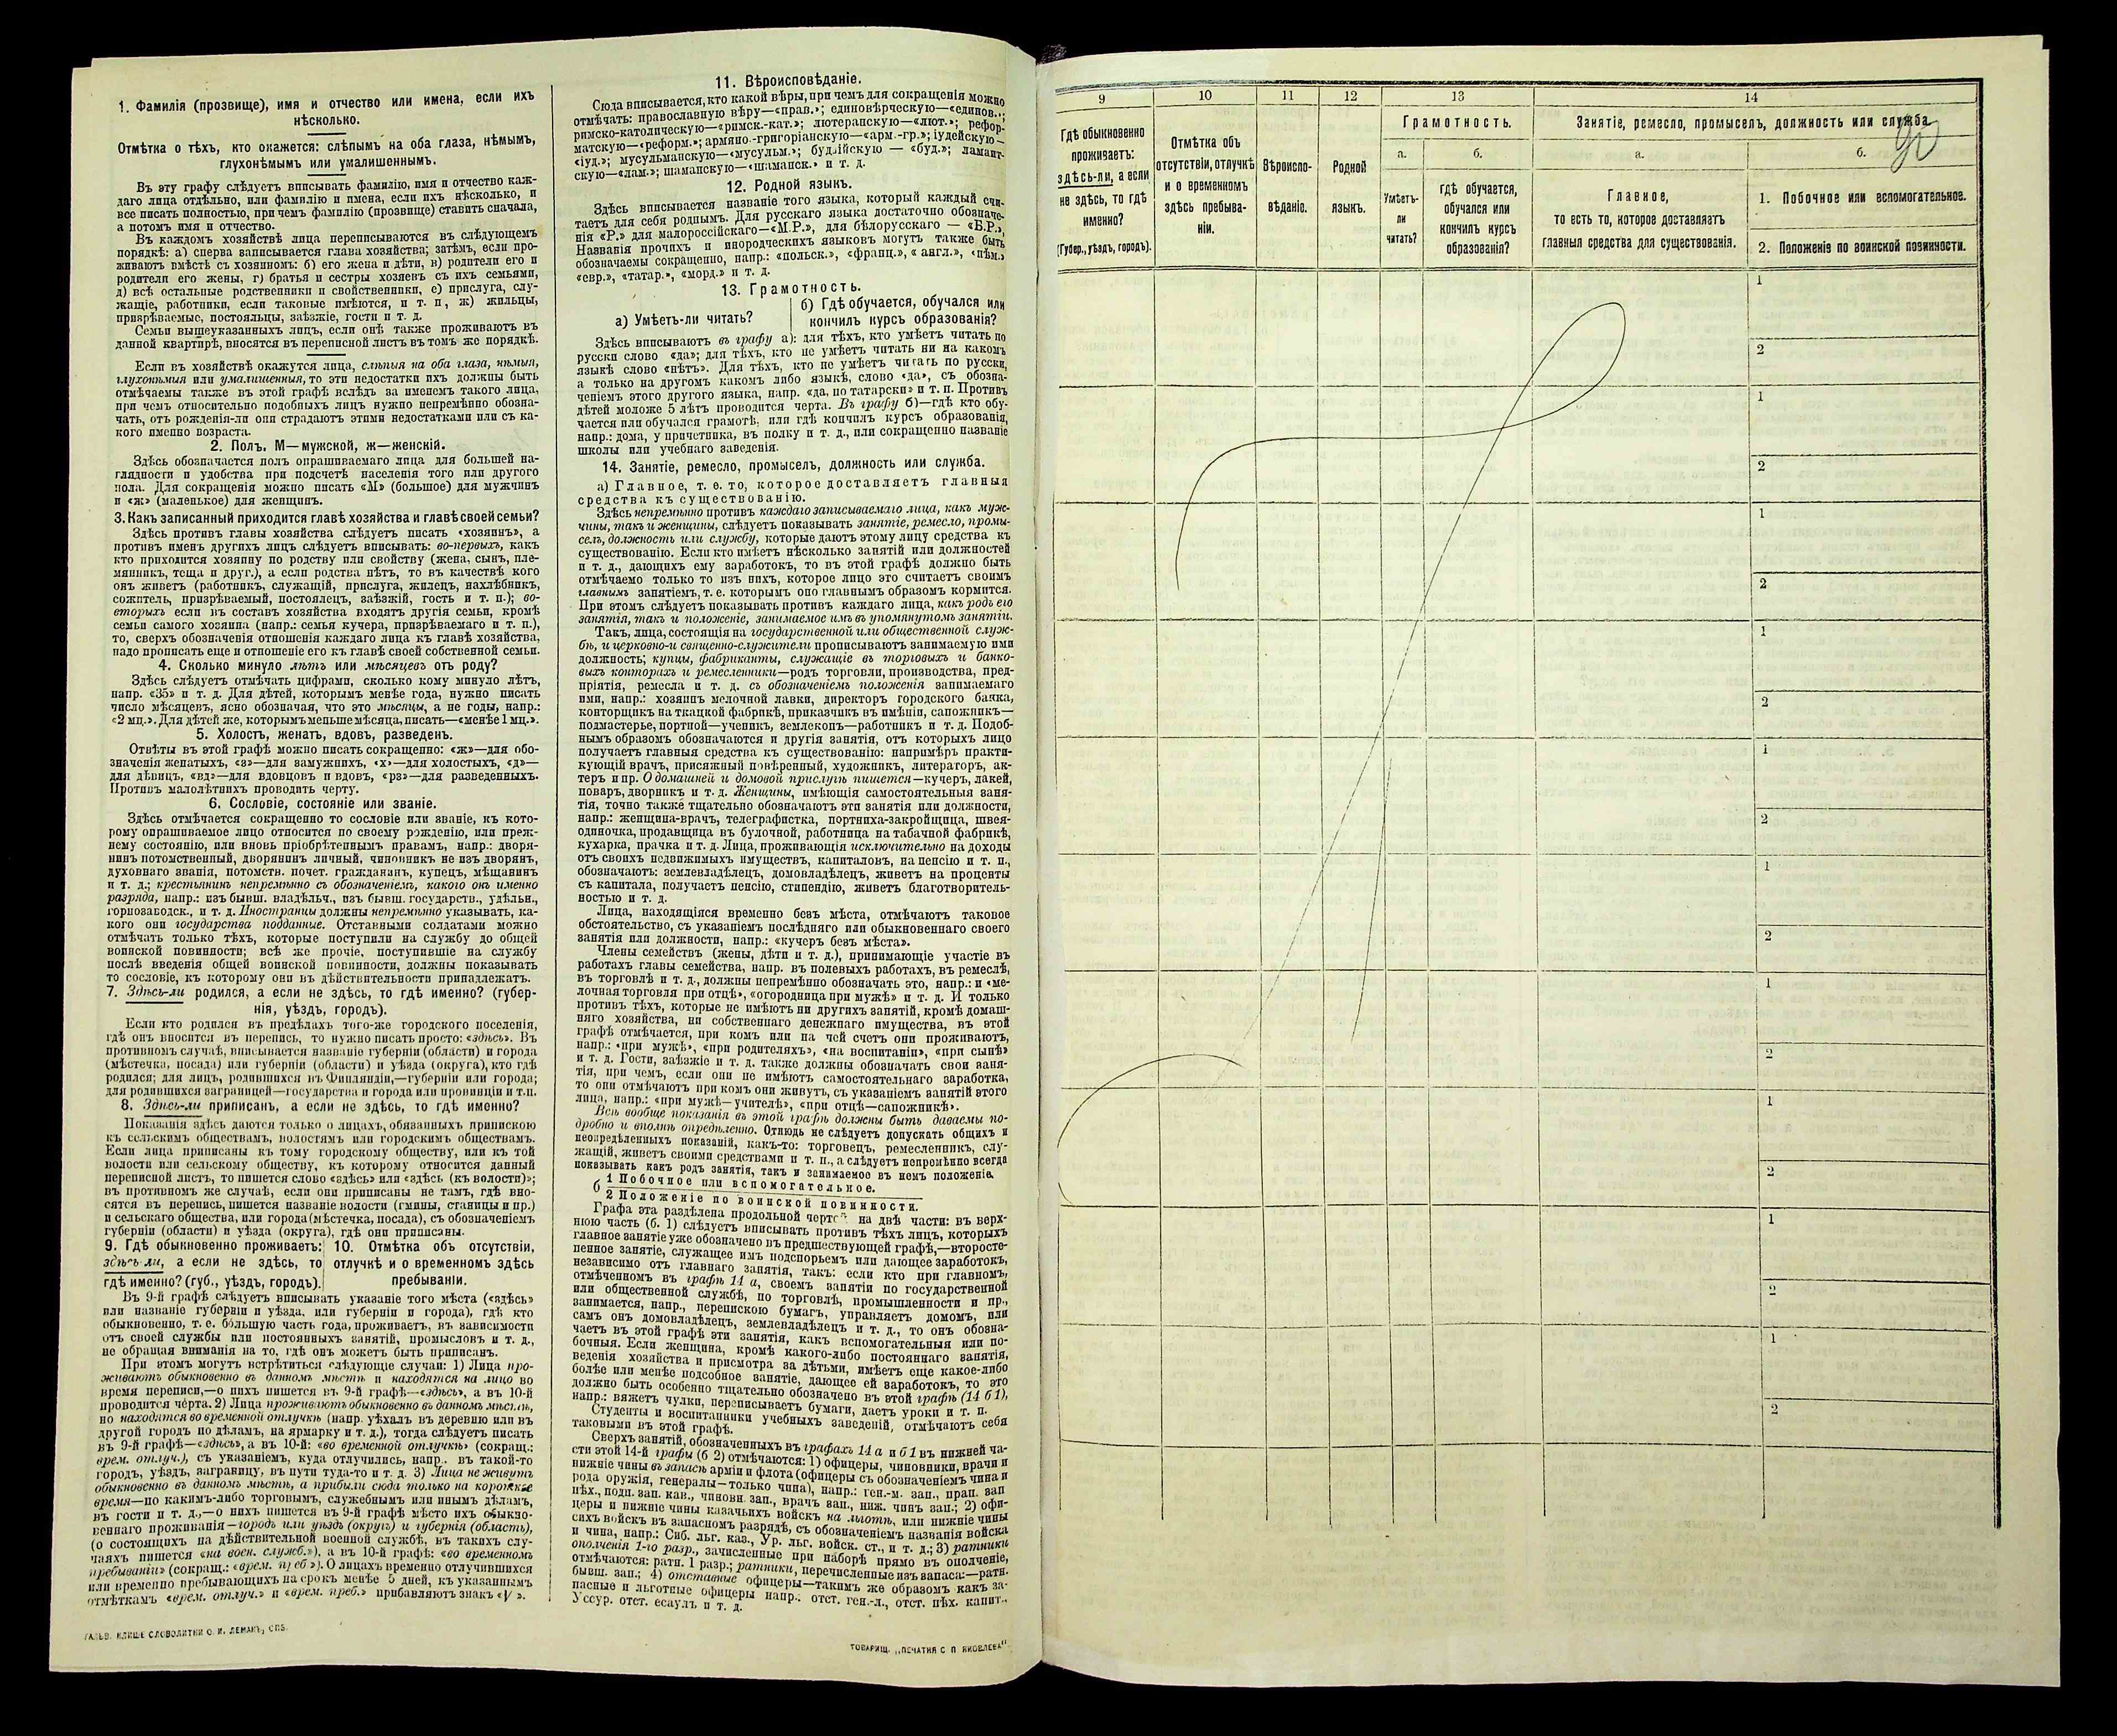 1. Фамилія (прозвище), имя и отчество или имена, если ихъ
нѣсколько.
Отмѣтка о тѣхъ, кто окажется: слѣпымъ на оба глаза, нѣмымъ,
глухонѣмымъ или умалишеннымъ.
Въ эту графу слѣдуетъ вписывать фамилію, имя и отчество каж-
даго лица отдѣльно, или фамилію и имена, если ихъ нѣсколько, и
все писать полностью, при чемъ фамилію (прозвище) ставить сначала,
а потомъ имя и отчество.
Въ каждомъ хозяйствѣ лица переписываются въ слѣдующемъ
порядкѣ: а) сперва записывается глава хозяйства; затѣмъ, если про-
живаютъ вмѣстѣ съ хозяиномъ: б) его жена и дѣти, в) родители его и
родители его жены, г) братья и сестры хозяевъ съ ихъ семьями,
д) всѣ остальные родственники и свойственники, е) прислуга, слу-
жащіе, работники, если таковые имѣются, и т. п, ж) жильцы,
призрѣваемые, постояльцы, заѣзжіе, гости и т. д.
Семьи вышеуказанныхъ лицъ, если онѣ также проживаютъ въ
данной квартирѣ, вносятся въ переписной листъ въ томъ же порядкѣ.
Если въ хозяйствѣ окажутся лица, слѣпыя на оба глаза, нѣмыя,
глухонѣмыя или умалишенныя, то эти недостатки ихъ должны быть
отмѣчаемы также въ этой графѣ вслѣдъ за именемъ такого лица,
при чемъ относительно подобныхъ лицъ нужно непремѣнно обозна-
чать, отъ рожденія-ли они страдаютъ этими недостатками или съ ка-
кого именно возраста.
2. Полъ. М—мужской, ж—женскій.
Здѣсь обозначается полъ опрашиваемаго лица для большей на-
глядности и удобства при подсчетѣ населенія того или другого
пола. Для сокращенія можно писать «М» (большое) для мужчинъ
и «ж» (маленькое) для женщинъ.
3. Какъ записанный приходится главѣ хозяйства и главѣ своей семьи?
Здѣсь противъ главы хозяйства слѣдуетъ писать «хозяинъ», а
противъ именъ другихъ лицъ слѣдуетъ вписывать: во-первыхъ, какъ
кто приходится хозяину по родству или свойству (жена, сынъ, пле-
мянникъ, теща и друг.), а если родства нѣтъ, то въ качествѣ кого
онъ живетъ (работникъ, служащій, прислуга, жилецъ, нахлѣбникъ,
сожитель, призрѣваемый, постоялецъ, заѣзжій, гость и т. п.); во-
вторыхъ если въ составъ хозяйства входятъ другія семьи, кромѣ
семьи самого хозяина (напр.: семья кучера, призрѣваемаго и т. п.),
то, сверхъ обозначенія отношенія каждаго лица къ главѣ хозяйства,
надо прописать еще и отношеніе его къ главѣ своей собственной семьи.
4. Сколько минуло лѣтъ или мѣсяцевъ отъ роду?
Здѣсь слѣдуетъ отмѣчать цифрами, сколько кому минуло лѣтъ,
напр. «35» и т. д. Для дѣтей, которымъ менѣе года, нужно писать
число мѣсяцевъ, ясно обозначая, что это мѣсяцы, а не годы, напр.:
«2 мц.». Для дѣтей же, которымъ меньше мѣсяца, писать—«менѣе 1 мц.».
5. Холостъ, женатъ, вдовъ, разведенъ.
Отвѣты въ этой графѣ можно писать сокращенно: «ж»—для обо-
значенія женатыхъ, «з»—для замужнихъ, «х»—для холостыхъ, «д»—
для дѣвицъ, «вд»—для вдовцовъ и вдовъ, «рз»—для разведенныхъ.
Противъ малолѣтнихъ проводить черту.
6. Сословіе, состояніе или званіе.
Здѣсь отмѣчается сокращенно то сословіе или званіе, къ кото-
рому опрашиваемое лицо относится по своему рожденію, или преж-
нему состоянію, или вновь пріобрѣтеннымъ правамъ, напр.: дворя-
нинъ потомственный, дворянинъ личный, чиновникъ не изъ дворянъ,
духовнаго званія, потомств. почет. гражданинъ, купецъ, мѣщанинъ
и т. д.; крестьянинъ непремѣнно съ обозначеніемъ, какого онъ именно
разряда, напр.: изъ бывш. владѣльч., изъ бывш. государств., удѣльн.,
горнозаводск., и т. д. Иностранцы должны непремѣнно указывать, ка-
кого они государства подданные. Отставными солдатами можно
отмѣчать только тѣхъ, которые поступили на службу до общей
воинской повинности; всѣ же прочіе, поступившіе на службу
послѣ введенія общей воинской повинности, должны показывать
то сословіе, къ которому они въ дѣйствительности принадлежатъ.
7. Здѣсь-ли родился, а если не здѣсь, то гдѣ именно? (губер-
нія, уѣздъ, городъ).
Если кто родился въ предѣлахъ того-же городского поселенія,
гдѣ онъ вносится въ перепись, то нужно писать просто: «здѣсь». Въ
противномъ случаѣ, вписывается названіе губерніи (области) и города
(мѣстечка, посада) или губерніи (области) и уѣзда (округа), кто гдѣ
родился; для лицъ, родившихся въ Финляндіи,—губерніи или города;
для родившихся заграницей—государства и города или провинціи и т.п.
8. Здѣсь-ли приписанъ, а если не здѣсь, то гдѣ именно?
Показанія здѣсь даются только о лицахъ, обязанныхъ припискою
къ сельскимъ обществамъ, волостямъ или городскимъ обществамъ.
Если лица приписаны къ тому городскому обществу, или къ той
волости или сельскому обществу, къ которому относится данный
переписной листъ, то пишется слово «здѣсь» или «здѣсь (къ волости)»;
въ противномъ же случаѣ, если они приписаны не тамъ, гдѣ вно-
сятся въ перепись, пишется названіе волости (гмины, станицы и пр.)
и сельскаго общества, или города (мѣстечка, посада), съ обозначеніемъ
губерніи (области) и уѣзда (округа), гдѣ они приписаны.
9. Гдѣ обыкновенно проживаетъ:
здѣсь-ли, а если не здѣсь, то
гдѣ именно? (губ., уѣздъ, городъ).
10. Отмѣтка объ отсутствіи,
отлучкѣ и о временномъ здѣсь
пребываніи.
Въ 9-й графѣ слѣдуетъ вписывать указаніе того мѣста («здѣсь»
или названіе губерніи и уѣзда, или губерніи и города), гдѣ кто
обыкновенно, т. е. бóльшую часть года, проживаетъ, въ зависимости
отъ своей службы или постоянныхъ занятій, промысловъ и т. д.,
не обращая вниманія на то, гдѣ онъ можетъ быть приписанъ.
При этомъ могутъ встрѣтиться слѣдующіе случаи: 1) Лица про-
живаютъ обыкновенно въ данномъ мѣстѣ и находятся на лицо во
время переписи,—о нихъ пишется въ 9-й графѣ—«здѣсь», а въ 10-й
проводится чéрта. 2) Лица проживаютъ обыкновенно въ данномъ мѣстѣ,
но находятся во временной отлучкѣ (напр. уѣхалъ въ деревню или въ
другой городъ по дѣламъ, на ярмарку и т. д.), тогда слѣдуетъ писать
въ 9-й графѣ—«здѣсь», а въ 10-й: «во временной отлучкѣ» (сокращ.:
врем. отлуч.), съ указаніемъ, куда отлучились, напр.. въ такой-то
городъ, уѣздъ, заграницу, въ пути туда-то и т. д. 3) Лица не живутъ
обыкновенно въ данномъ мѣстѣ, а прибыли сюда только на короткое
время—по какимъ-либо торговымъ, служебнымъ или инымъ дѣламъ,
въ гости и т. д.,—о нихъ пишется въ 9-й графѣ мѣсто ихъ обыкно-
веннаго проживанія—городъ или уѣздъ (округъ) и губернія (область),
(о состоящихъ на дѣйствительной военной службѣ, въ такихъ слу-
чаяхъ пишется «на воен. служб.»), а въ 10-й графѣ: «во временномъ
пребываніи» (сокращ.: «врем. преб»). О лицахъ временно отлучившихся
или временно пребывающихъ на срокъ менѣе 5 дней, къ указаннымъ
отмѣткамъ «врем. отлуч.» и «врем. преб.» прибавляютъ знакъ «V».
ГАЛЬВ. КЛИШЕ СЛОВОЛИТНИ О. И. ЛЕМАНЪ, СПБ.
11. Вѣроисповѣданіе.
Сюда вписывается, кто какой вѣры, при чемъ для сокращенія можно
отмѣчать: православную вѣру—«прав.»; единовѣрческую—«единов.»;
римско-католическую—«римск.-кат.»; лютеранскую—«лют.»; рефор-
матскую—«реформ.»; армяно.-григоріанскую—«арм.-гр.»; іудейскую—
«іуд.»; мусульманскую—«мусульм.»; буддійскую — «буд.»; ламаит-
скую—«лам.»; шаманскую—«шаманск.» и т. д.
12. Родной языкъ.
Здѣсь вписывается названіе того языка, который каждый счи-
таетъ для себя роднымъ. Для русскаго языка достаточно обозначе-
нія «Р.» для малороссійскаго—«М.Р.», для бѣлорусскаго — «Б.Р.»,
Названія прочихъ и инородческихъ языковъ могутъ также быть
обозначаемы сокращенно, напр.: «польск.», «франц.», « англ.», «нѣм.»
«евр.», «татар.», «морд.» и т. д.
13. Грамотность.
а) Умѣетъ-ли читать?
б) Гдѣ обучается, обучался или
кончилъ курсъ образованія?
Здѣсь вписываютъ въ графу а): для тѣхъ, кто умѣетъ читать по
русски слово «да»; для тѣхъ, кто не умѣетъ читать ни на какомъ
языкѣ слово «нѣтъ». Для тѣхъ, кто не умѣетъ читать по русски,
а только на другомъ какомъ либо языкѣ, слово «да», съ обозна-
ченіемъ этого другого языка, напр. «да, по татарски» и т. п. Противъ
дѣтей моложе 5 лѣтъ проводится черта. Въ графу б)—гдѣ кто обу-
чается или обучался грамотѣ, или гдѣ кончилъ курсъ образованія,
напр.: дома, у причетника, въ полку и т. д., или сокращенно названіе
школы или учебнаго заведенія.
14. Занятіе, ремесло, промыселъ, должность или служба.
а) Главное, т. е. то, которое доставляетъ главныя
средства къ существованію.
Здѣсь непремѣнно противъ каждаго записываемаго лица, какъ муж-
чины, такъ и женщины, слѣдуетъ показывать занятіе, ремесло, промы-
селъ, должность или службу, которые даютъ этому лицу средства къ
существованію. Если кто имѣетъ нѣсколько занятій или должностей
и т. д., дающихъ ему заработокъ, то въ этой графѣ должно быть
отмѣчаемо только то изъ нихъ, которое лицо это считаетъ своимъ
главнымъ занятіемъ, т. е. которымъ оно главнымъ образомъ кормится.
При этомъ слѣдуетъ показывать противъ каждаго лица, какъ родъ его
занятія, такъ и положеніе, занимаемое имъ въ упомянутомъ занятіи.
Такъ, лица, состоящія на государственной или общественной служ-
бѣ, и церковно-и священно-служители прописываютъ занимаемую ими
должность; купцы, фабриканты, служащіе въ торговыхъ и банко-
выхъ конторахъ и ремесленники—родъ торговли, производства, пред-
пріятія, ремесла и т. д. съ обозначеніемъ положенія занимаемаго
ими, напр.: хозяинъ мелочной лавки, директоръ городского банка,
конторщикъ на ткацкой фабрикѣ, приказчикъ въ имѣніи, сапожникъ—
подмастерье, портной—ученикъ, землекопъ—работникъ и т. д. Подоб-
нымъ образомъ обозначаются и другія занятія, отъ которыхъ лицо
получаетъ главныя средства къ существованію: напримѣръ практи-
кующій врачъ, присяжный повѣренный, художникъ, литераторъ, ак-
теръ и пр. О домашней и домовой прислугѣ пишется—кучеръ, лакей,
поваръ, дворникъ и т. д. Женщины, имѣющія самостоятельныя заня-
тія, точно также тщательно обозначаютъ эти занятія или должности,
напр.: женщина-врачъ, телеграфистка, портниха-закройщица, швея-
одиночка, продавщица въ булочной, работница на табачной фабрикѣ,
кухарка, прачка и т. д. Лица, проживающія исключительно на доходы
отъ своихъ недвижимыхъ имуществъ, капиталовъ, на пенсію и т. п.,
обозначаютъ: землевладѣлецъ, домовладѣлецъ, живетъ на проценты
съ капитала, получаетъ пенсію, стипендію, живетъ благотворитель-
ностью и т. д.
Лица, находящіяся временно безъ мѣста, отмѣчаютъ таковое
обстоятельство, съ указаніемъ послѣдняго или обыкновеннаго своего
занятія или должности, напр.: «кучеръ безъ мѣста».
Члены семействъ (жены, дѣти и т. д.), принимающіе участіе въ
работахъ главы семейства, напр. въ полевыхъ работахъ, въ ремеслѣ,
въ торговлѣ и т. д., должны непремѣнно обозначать это, напр.: и «ме-
лочная торговля при отцѣ», «огородница при мужѣ» и т. д. И только
противъ тѣхъ, которые не имѣютъ ни другихъ занятій, кромѣ домаш-
няго хозяйства, ни собственнаго денежнаго имущества, въ этой
графѣ отмѣчается, при комъ или на чей счетъ они проживаютъ,
напр.: «при мужѣ», «при родителяхъ», «на воспитаніи», «при сынѣ»
и т. д. Гости, заѣзжіе и т. д. также должны обозначать свои заня-
тія, при чемъ, если они не имѣютъ самостоятельнаго заработка,
то они отмѣчаютъ при комъ они живутъ, съ указаніемъ занятій этого
лица, напр.: «при мужѣ—учителѣ», «при отцѣ—сапожникѣ».
Всѣ вообще показанія въ этой графѣ должны быть даваемы по-
дробно и вполнѣ опредѣленно. Отнюдь не слѣдуетъ допускать общихъ и
неопредѣленныхъ показаній, какъ-то: торговецъ, ремесленникъ, слу-
жащій, живетъ своими средствами и т. п., а слѣдуетъ непремѣнно всегда
показывать какъ родъ занятія, такъ и занимаемое въ немъ положеніе.
б 1 Побочное или вспомогательное.
2 Положеніе по воинской повинности.
Графа эта раздѣлена продольной чертой на двѣ части: въ верх-
нюю часть (б. 1) слѣдуетъ вписывать противъ тѣхъ лицъ, которыхъ
главное занятіе уже обозначено въ предшествующей графѣ,—второсте-
пенное занятіе, служащее имъ подспорьемъ или дающее заработокъ,
независимо отъ главнаго занятія, такъ: если кто при главномъ,
отмѣченномъ въ графѣ 14 а, своемъ занятіи по государственной
или общественной службѣ, по торговлѣ, промышленности и пр.,
занимается, напр., перепискою бумагъ, управляетъ домомъ, или
самъ онъ домовладѣлецъ, землевладѣлецъ и т. д., то онъ обозна-
чаетъ въ этой графѣ эти занятія, какъ вспомогательныя или по-
бочныя. Если женщина, кромѣ какого-либо постояннаго занятія,
веденія хозяйства и присмотра за дѣтьми, имѣетъ еще какое-либо
болѣе или менѣе подсобное занятіе, дающее ей заработокъ, то это
должно быть особенно тщательно обозначено въ этой графѣ (14 б 1),
напр.: вяжетъ чулки, переписываетъ бумаги, даетъ уроки и т. п.
Студенты и воспитанники учебныхъ заведеній, отмѣчаютъ себя
таковыми въ этой графѣ.
Сверхъ занятій, обозначенныхъ въ графахъ 14 а и б 1 въ нижней ча-
сти этой 14-й графы (б 2) отмѣчаются: 1) офицеры, чиновники, врачи и
нижніе чины въ запасѣ арміи и флота (офицеры съ обозначеніемъ чина и
рода оружія, генералы—только чина), напр.: ген.-м. зап., прап. зап
пѣх., подп. зап. кав., чиновн. зап., врачъ зап., ниж. чинъ зап.; 2) офи-
церы и нижніе чины казачьихъ войскъ на льготѣ, или нижніе чины
сихъ войскъ въ запасномъ разрядѣ, съ обозначеніемъ названія войска
и чина, напр.: Сиб. льг. каз., Ур. льг. войск. ст., и т. д.; 3) ратники
ополченія 1-го разр., зачисленные при наборѣ прямо въ ополченіе,
отмѣчаются: ратн. 1 разр.; ратники, перечисленные изъ запаса:—ратн.
бывш. зап.; 4) отставные офицеры—такимъ же образомъ какъ за-
пасные и льготные офицеры напр.: отст. ген.-л., отст. пѣх. капит.,
Уссур. отст. есаулъ и т. д.
ТОВАРИЩ. „ПЕЧАТНЯ С П ЯКОВЛЕВА"
9
10
11
12
13
14
Гдѣ обыкновенно
проживаетъ:
здѣсь-ли, а если
не здѣсь, то гдѣ
именно?
(Губер., уѣздъ, городъ).
Отмѣтка объ
отсутствіи, отлучкѣ
и о временномъ
здѣсь пребыва-
ніи.
Вѣроиспо-
вѣданіе.
Родной
языкъ.
Грамотность.
а.
Умѣетъ-
ли
читать?
б.
гдѣ обучается,
обучался или
кончилъ курсъ
образованія?
Занятіе, ремесло, промыселъ, должность или служба.
90
а.
Главное,
то есть то, которое доставляетъ
главныя средства для существованія.
б.
1. Побочное или вспомогательное.
2. Положеніе по воинской повинности.
1
2
1
2
1
2
1
2
1
2
1
2
1
2
1
2
1
2
1
2